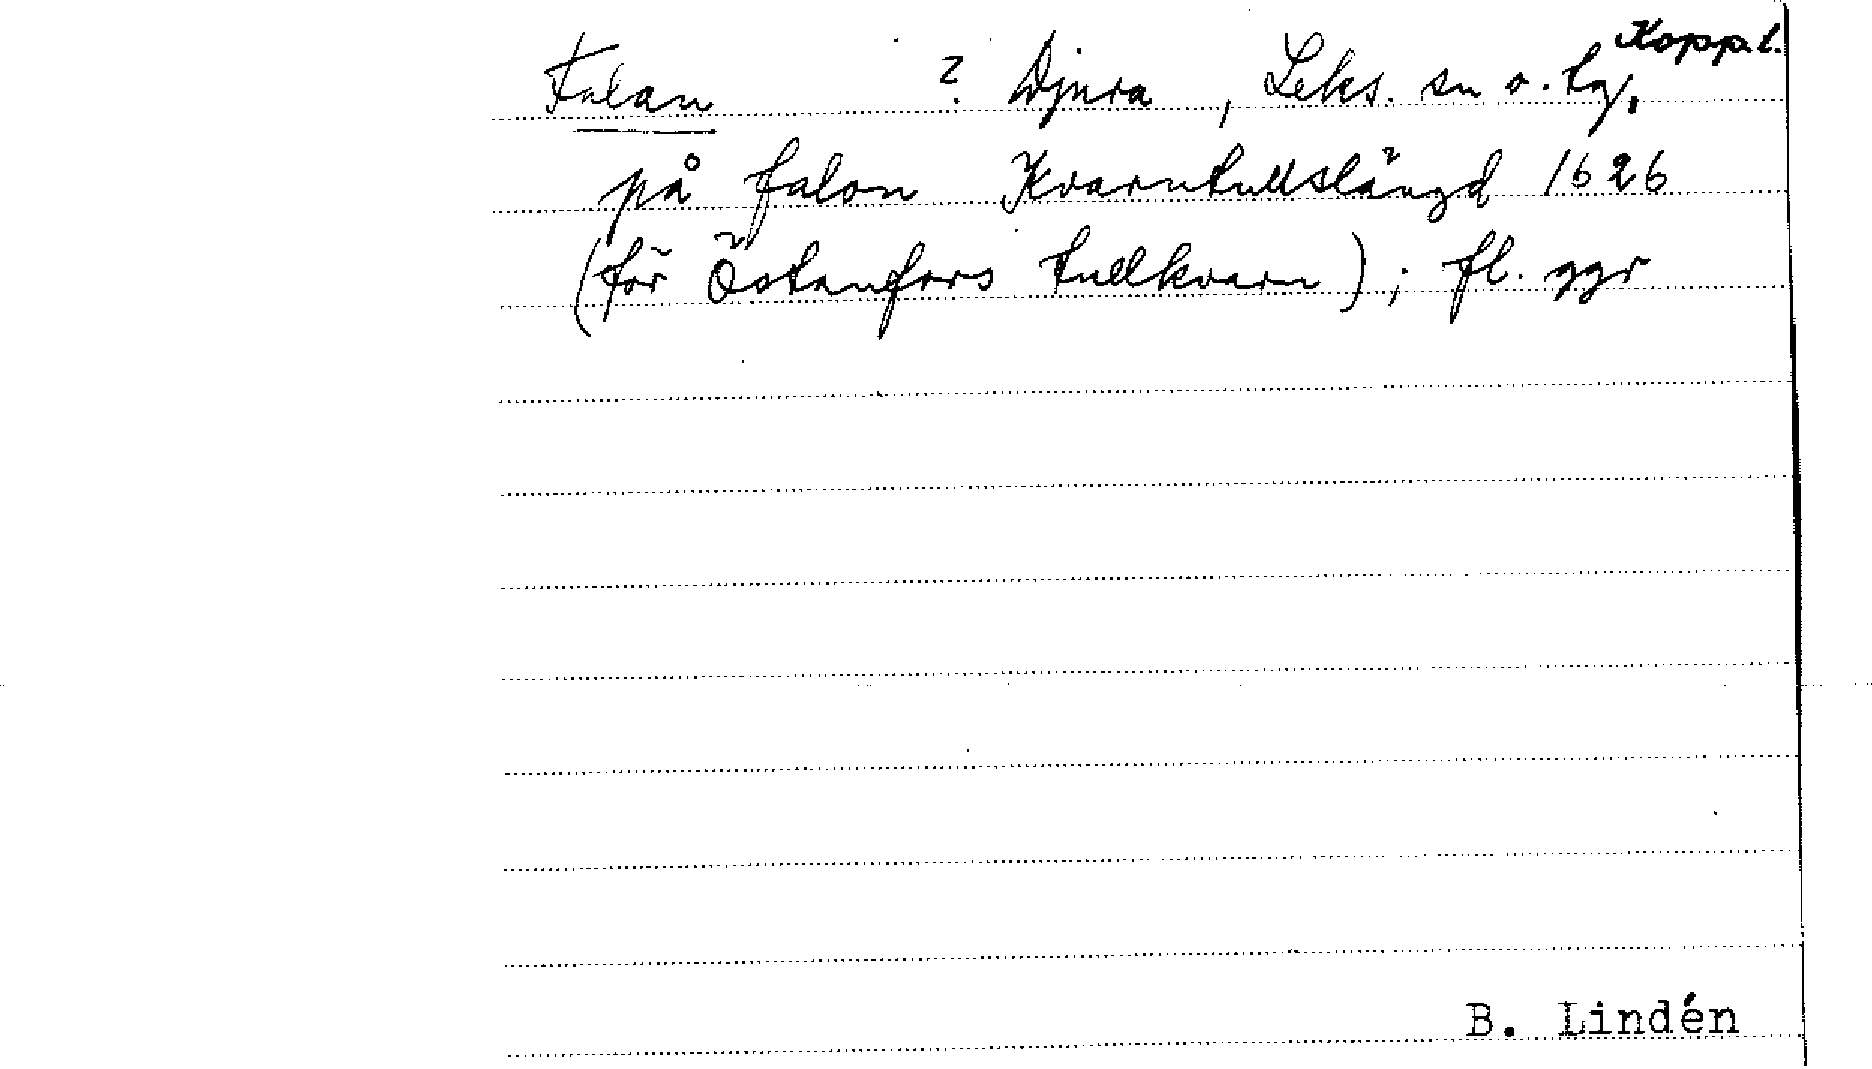 Falan ? Djura, Leks. sn o. tg, Kopp.l.
på falon Kvarntullslängd 1626
(för Östanfors tullkvarn); fl. ggr
B. Lindén